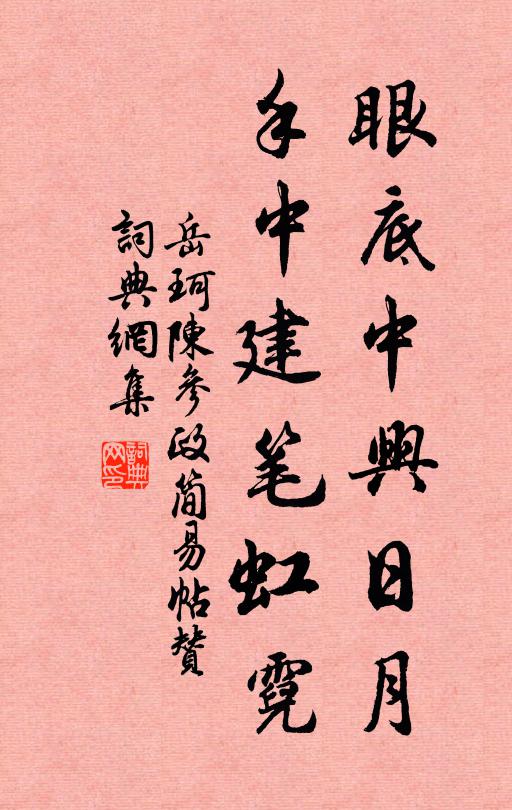 眼底中興日月
手中建笔虹霓
岳珂陳參政简易帖贊
詞典網集
詞典
网印